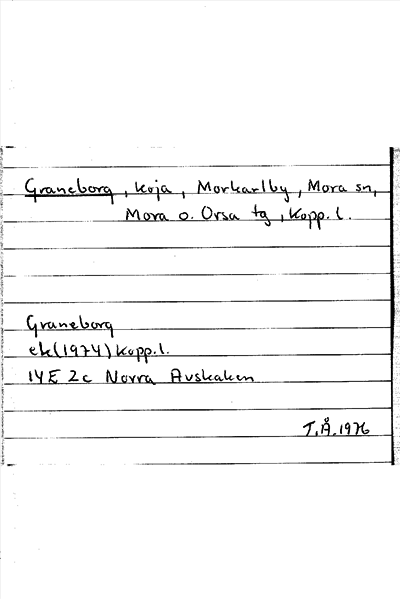 Graneborg, koja, Morkarlby, Mora sn,
Mora o. Orsa tg, Kopp. l.
Graneborg
ek(1974) Kopp. l.
14E 2c Norra Avskaken
T.Å. 1976